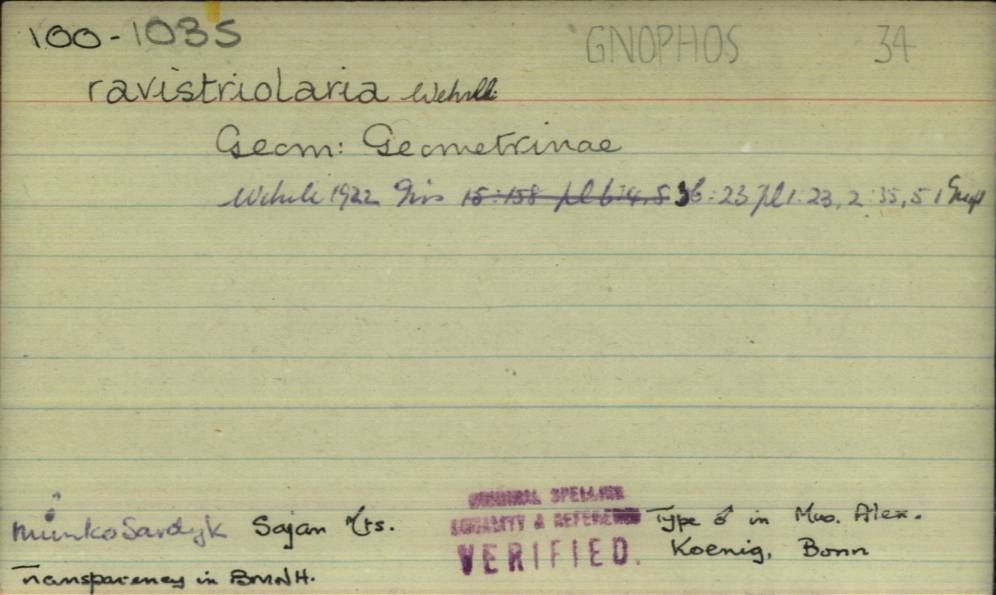 100-1035 GNOPHOS 34
ravistriolaria Wehrli
Geom: Geometrinae
Wehrli 1922 Iris 15:158 pl 6:4,5 36:23 pl 1:23, 2:35, 51
ORIGINAL SPELLING
LOCALITY & REFERENCE
VERIFIED.
Munko Sardyk Sajan Mts.
Transparency in BMNH.
Type ♂ in Mus. Alex.
Koenig, Bonn